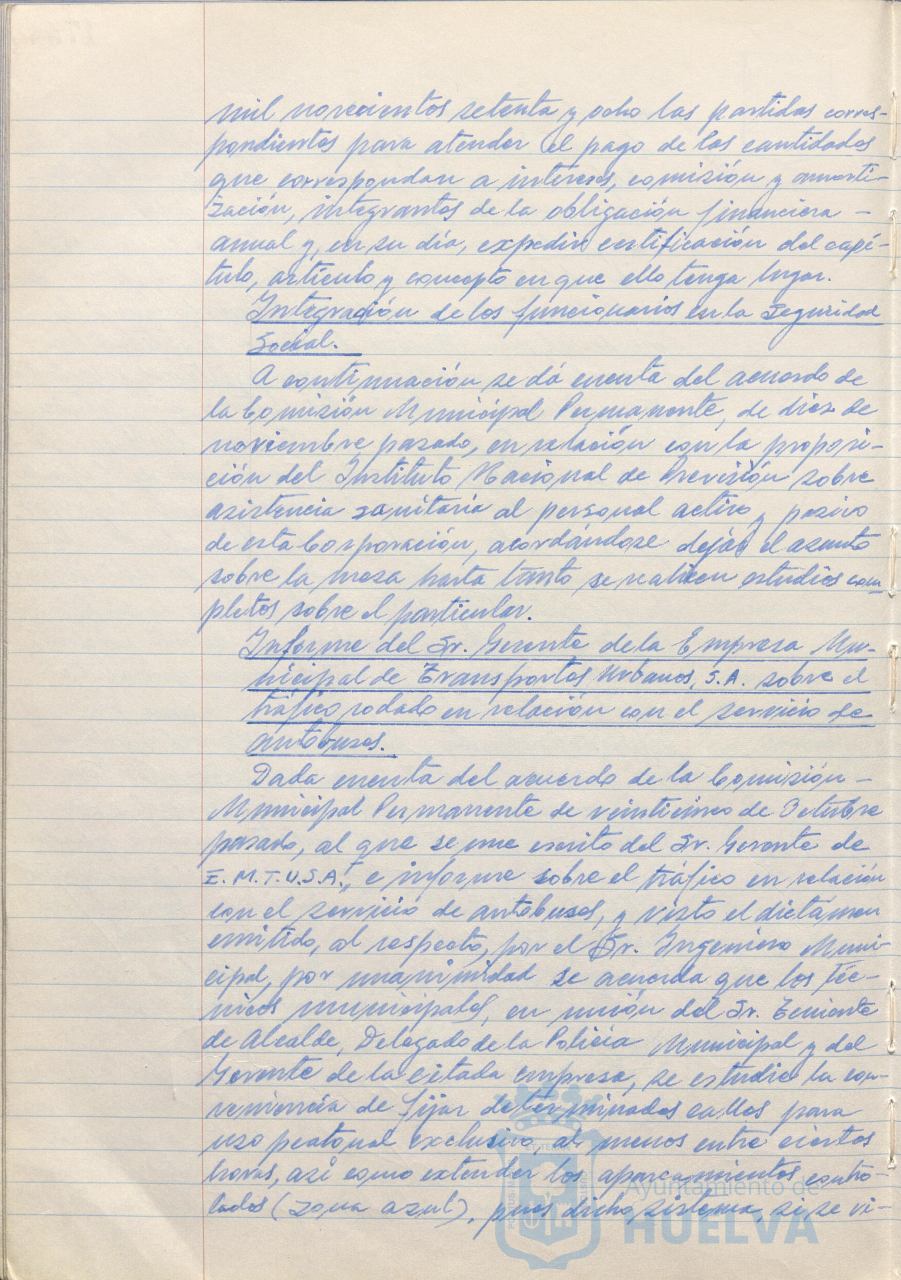 mil novecientos setenta y ocho las partidas corres-
pondientes para atender el pago de las cantidades
que correspondan a intereses, comisión y amorti-
zación, integrantes de la obligación financiera -
anual y, en su día, expedir certificación del capí-
tulo, artículo y concepto en que ello tenga lugar.
Integración de los funcionarios en la Seguridad
Social.
A continuación se dá cuenta del acuerdo de
la Comisión Municipal Permanente, de diez de
noviembre pasado, en relación con la proposi-
ción del Instituto Nacional de Previsión sobre
asistencia sanitaria al personal activo y pasivo
de esta Corporación, acordándose dejar el asunto
sobre la mesa hasta tanto se realicen estudios com
pletos sobre el particular.
Informe del Sr. Gerente de la Empresa Mu-
nicipal de Transportes Urbanos, S.A. sobre el
tráfico rodado en relación con el servicio de
autobuses.
Dada cuenta del acuerdo de la Comisión -
Municipal Permanente de veinticinco de Octubre
pasado, al que se une escrito del Sr. Gerente de
E.M.T.U.S.A., e informe sobre el tráfico en relación
con el servicio de autobuses, y visto el dictamen
emitido, al respecto, por el Sr. Ingeniero Muni-
cipal, por unanimidad se acuerda que los téc-
nicos municipales, en unión del Sr. Teniente
de Alcalde, Delegado de la Policía Municipal y del
Gerente de la citada empresa, se estudie la con-
veniencia de fijar determinadas calles para
uso peatonal exclusivo, al menos entre ciertas
horas, así como extender los aparcamientos contro-
lados (zona azul), pues dicho sistema, si se vi-
Ayuntamiento de
HUELVA